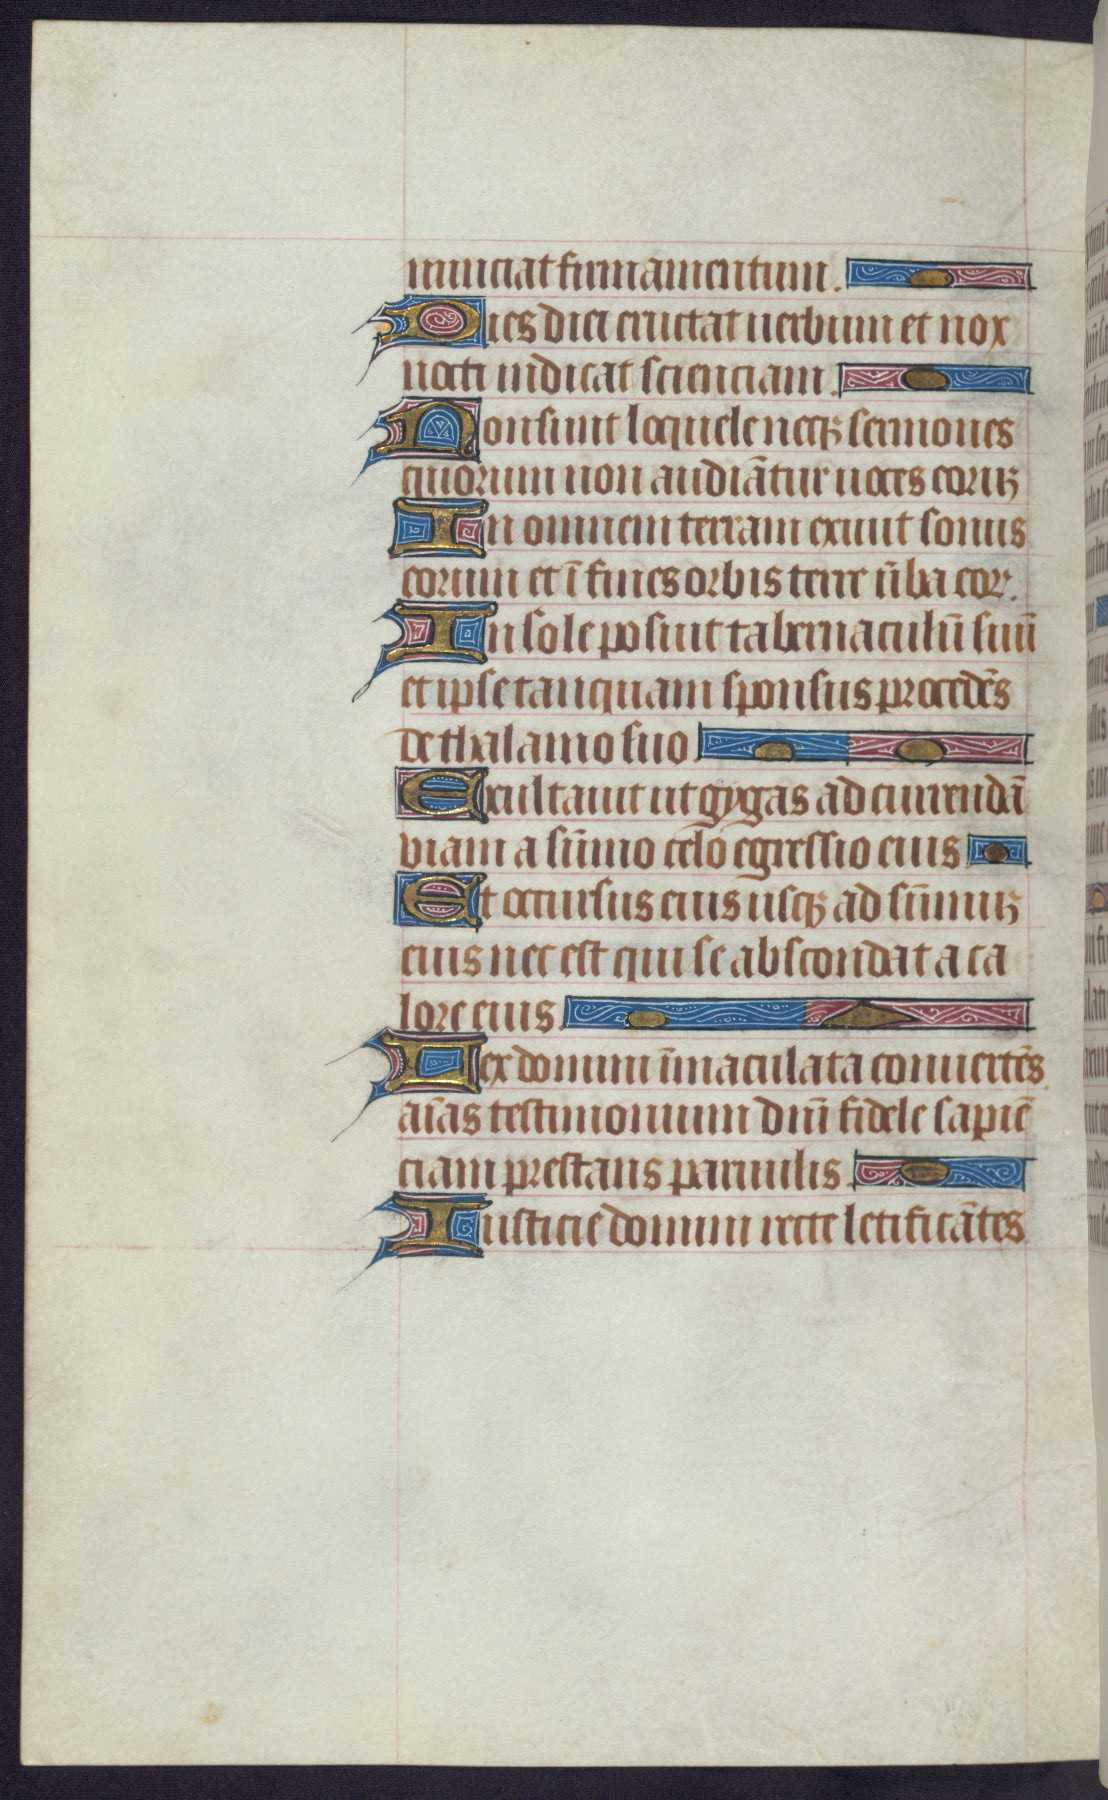 nunciat firmamentum.
Dies diei eructat uerbum et nox
nocti indicat scienciam.
Non sunt loquele neqꝫ sermones
quorum non audiātur uoces eoruꝫ
In omnem terram exiuit sonus
eorum et ī fines orbis terre ūba eor.
In sole posuit tabernaculū suū
et ipse tanquam sponsus procedēs
de thalamo suo.
Exultauit ut gygas ad currendā
viam a sūmo celo egressio eius
Et occursus eius usqꝫ ad sūmuꝫ
eius nec est qui se abscondat a ca
lore eius.
Lex domini īmaculata conuertēs
aīas testimonium dnī fidele sapiē
ciam prestans paruulis.
Iusticie domini recte letificātes